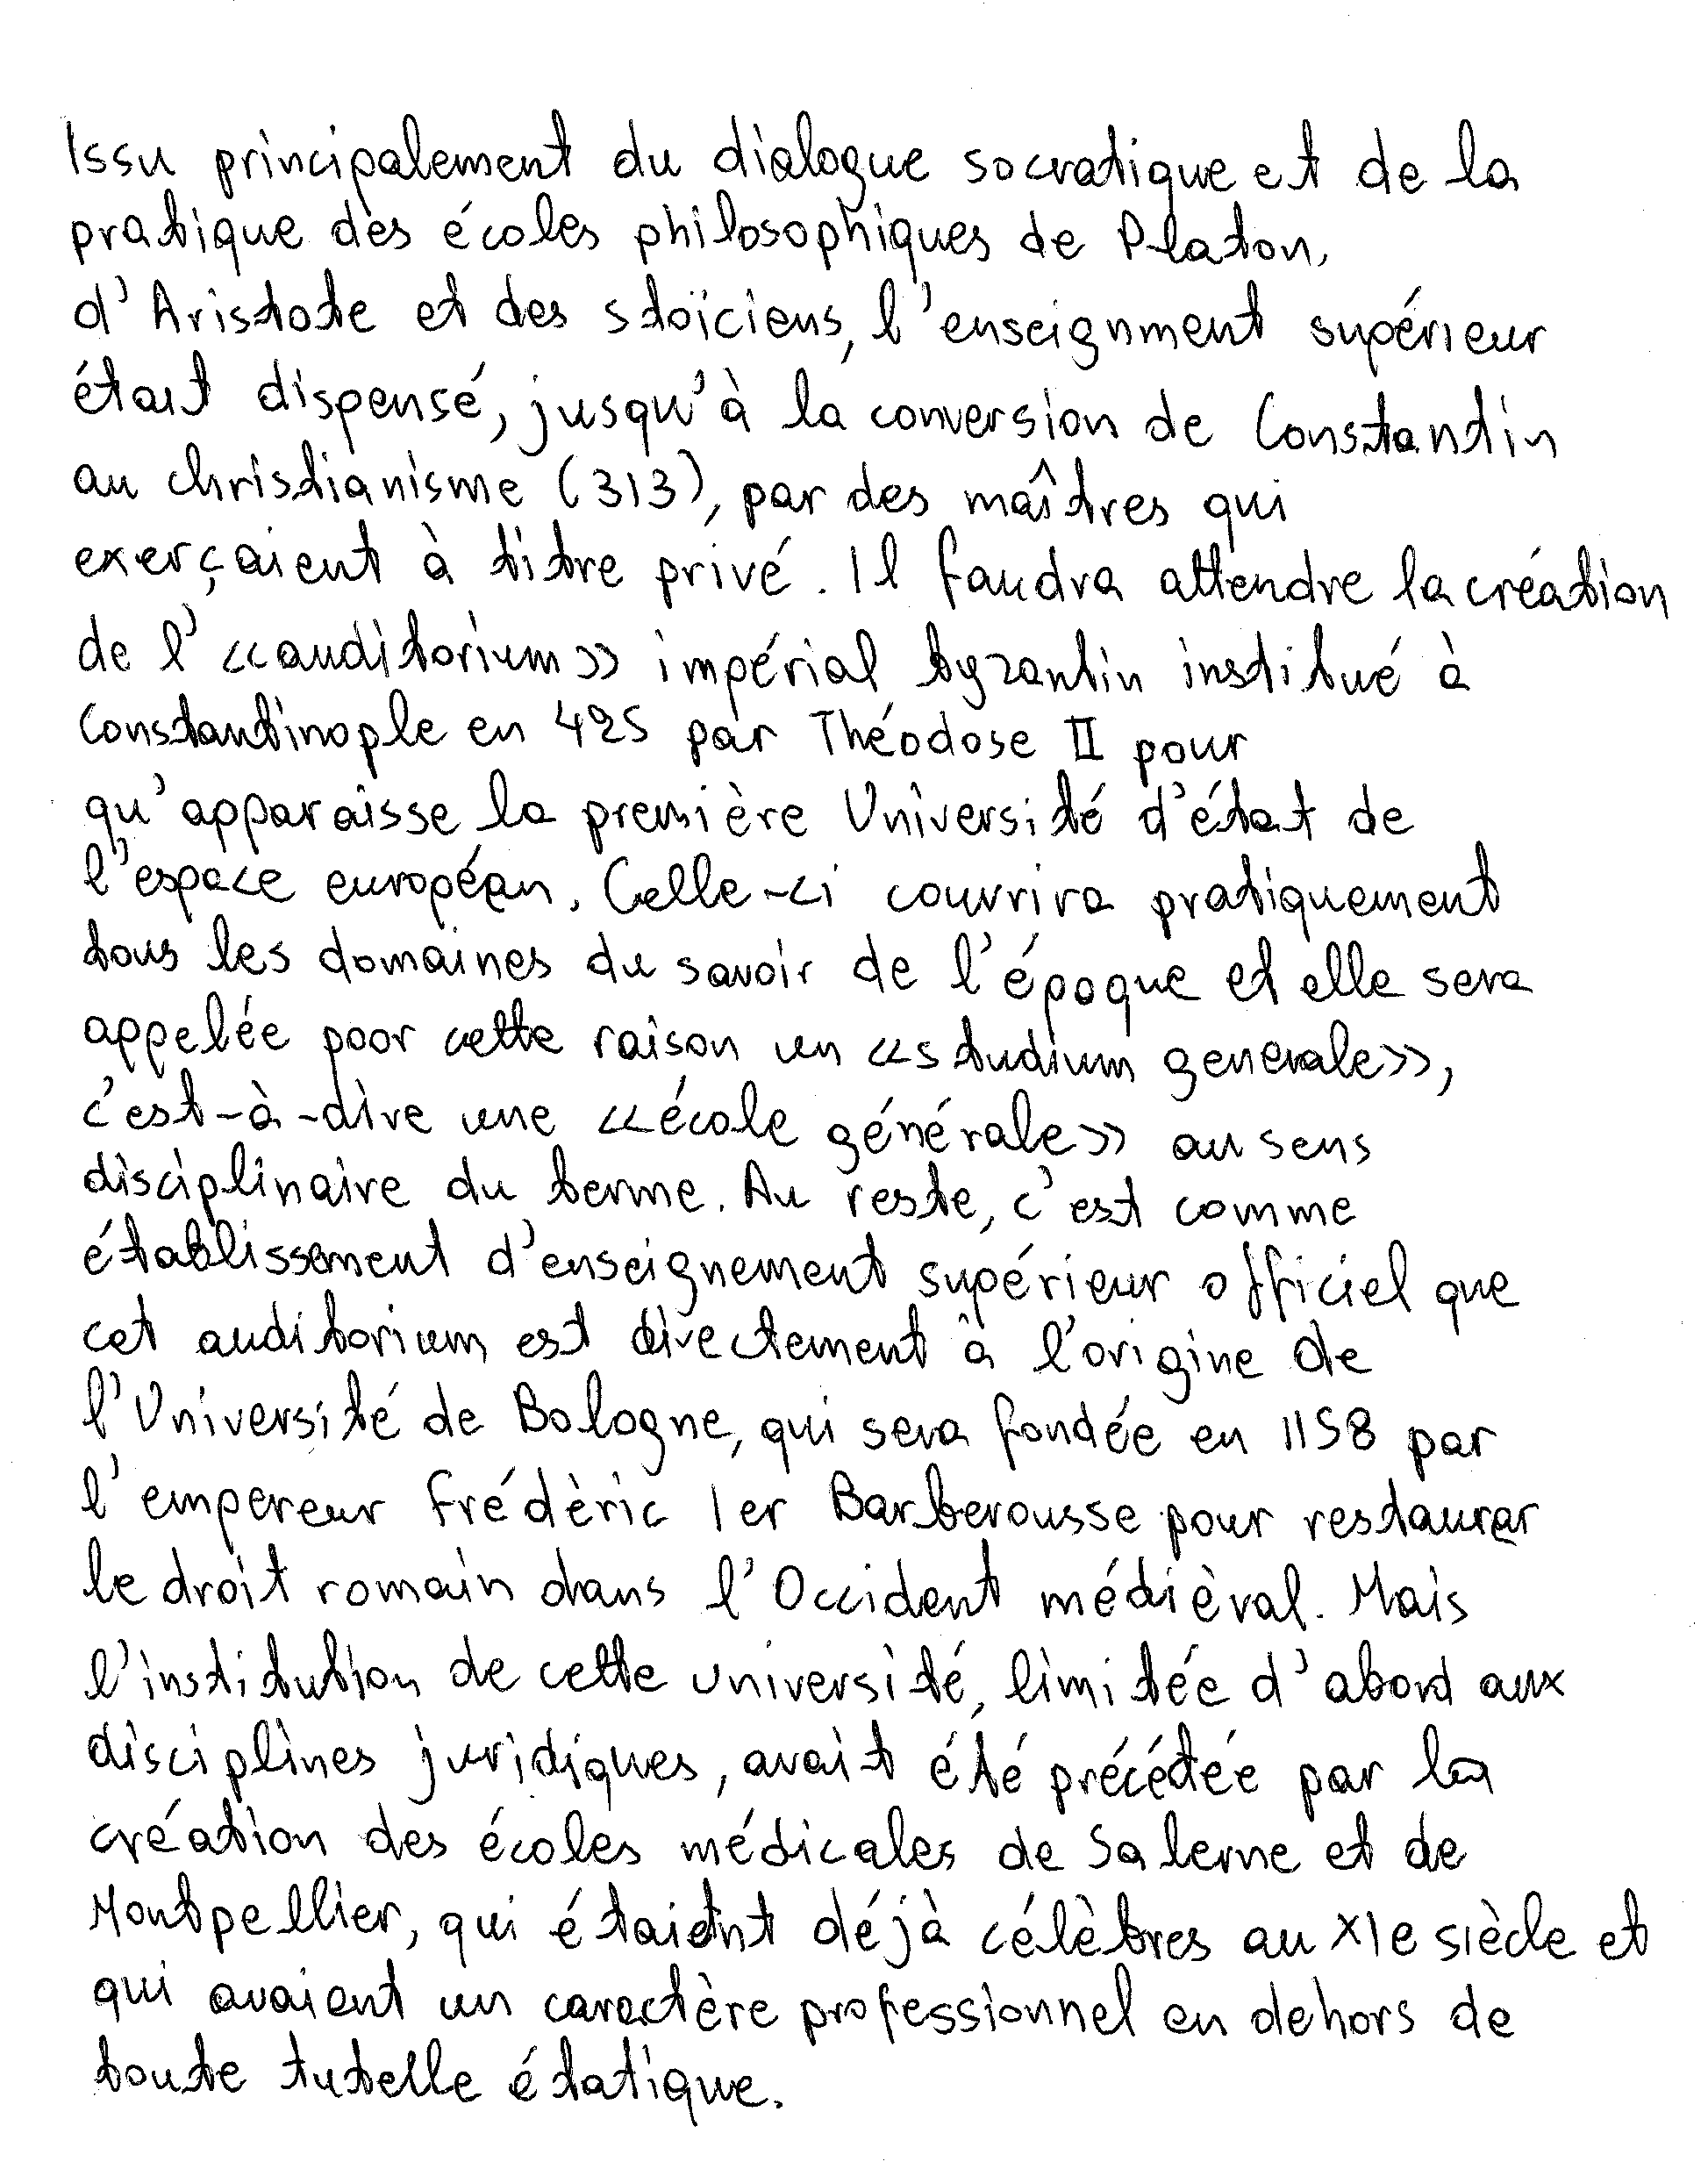 Issu principalement du dialogue socratique et de la
pratique des écoles philosophiques de Platon,
d'Aristote et des stoïciens, l'enseignment supérieur
était dispensé, jusqu'à la conversion de Constantin
au christianisme (313), par des maîtres qui
exerçaient à titre privé. Il faudra attendre la création
de l'«auditorium» impérial byzantin institué à
Constantinople en 425 par Théodose II pour
qu'apparaisse la première Université d'état de
l'espace européen. Celle-ci couvrira pratiquement
tous les domaines du savoir de l'époque et elle sera
appelée poor cette raison un «studium generale»,
c'est-à-dire une «école générale» au sens
disciplinaire du terme. Au reste, c'est comme
établissement d'enseignement supérieur officiel que
cet auditorium est directement à l'origine de
l'Université de Bologne, qui sera fondée en 1158 par
l'empereur Frédèric 1er Barberousse pour restaurer
le droit romain dans l'Occident médièval. Mais
l'institution de cette université, limitée d'abord aux
disciplines juridiques, avait été précédée par la
création des écoles médicales de Salerne et de
Montpellier, qui étaient déjà célèbres au XIe siècle et
qui avaient un caractère professionnel en dehors de
toute tutelle étatique.